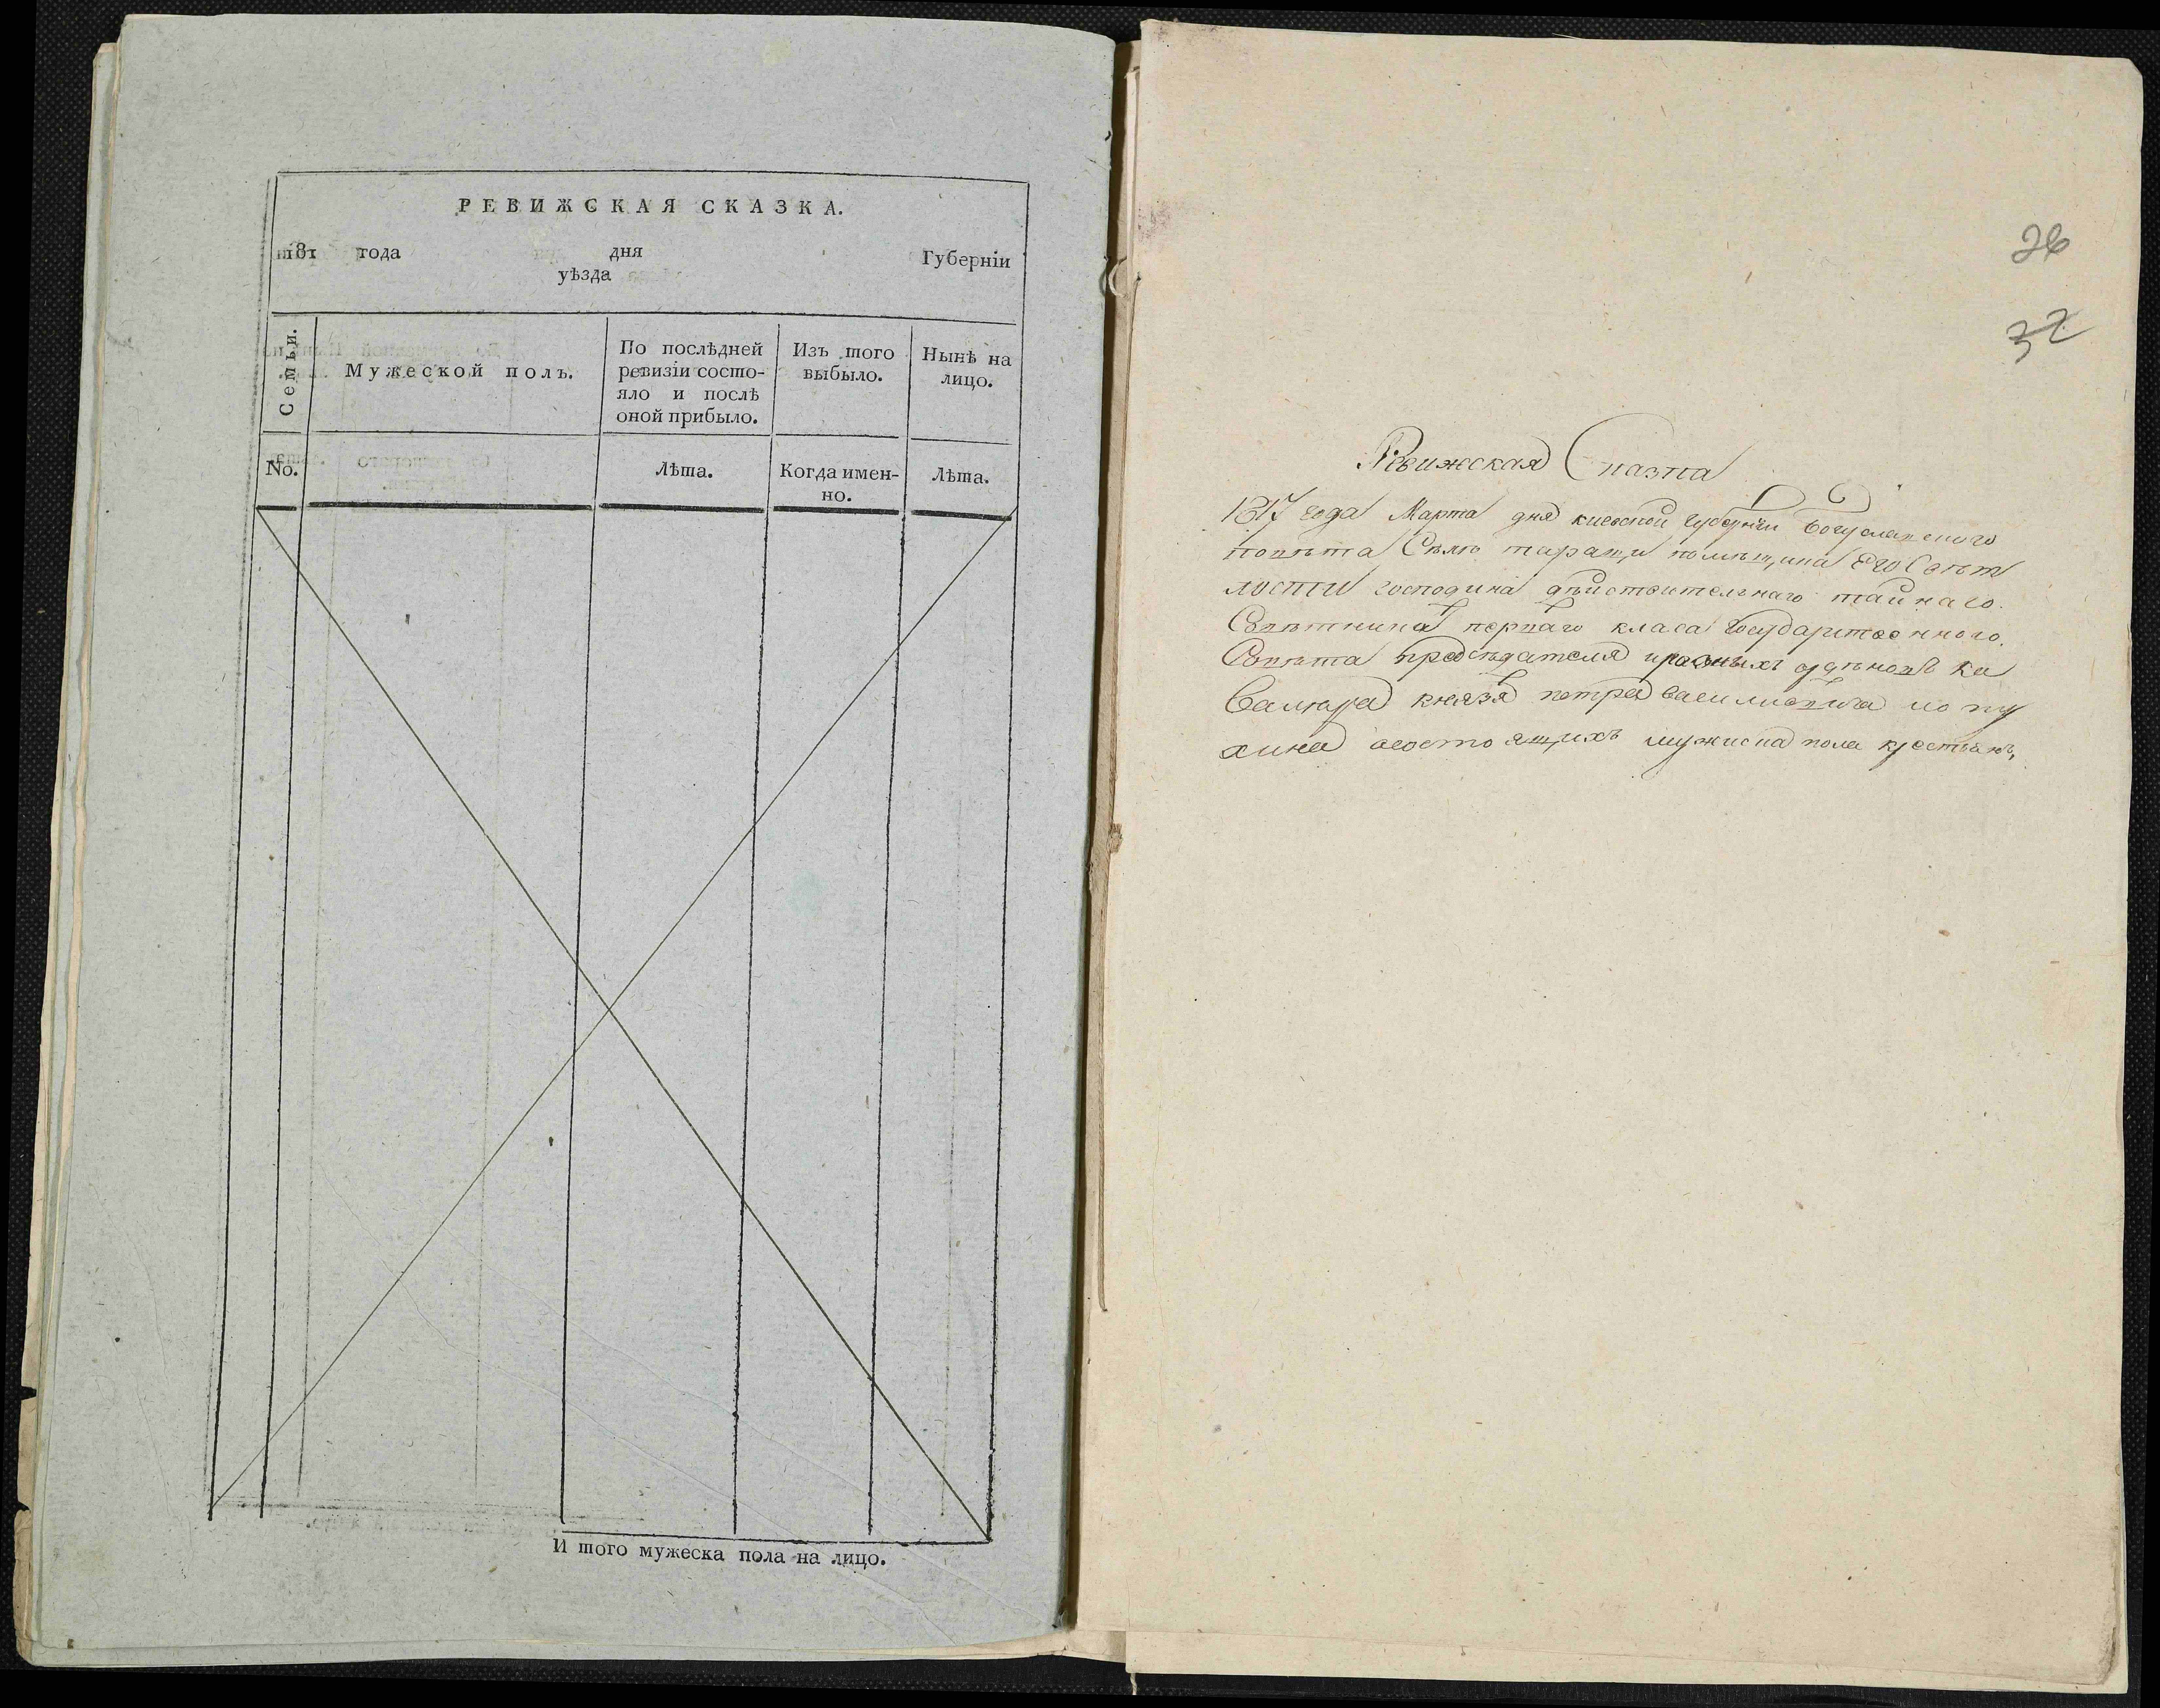 РЕВИЖСКАЯ СКАЗКА.
181 года дня Губерніи
уѣзда
Семьи.
Мужеской полъ.
По послѣдней
ревизіи состо-
яло и послѣ
оной прибыло.
Изъ того
выбыло.
Нынѣ на
лицо.
No.
Лѣта.
Когда имен-
но.
Лѣта.
И того мужеска пола на лицо.
26
32
Ревижская Сказка
1817 года Марта дня киевской губерніи Богуславского
повѣта Сѣла таращи помѣщика Его Свѣт
лости господина дѣйствительнаго тайнаго
Совѣтника перваго класа Государственного
Совѣта предсѣдателя и разныхъ орденовъ ка
валера князя петра василиевича лопу
хина состоящихъ мужиска пола крестьянъ,